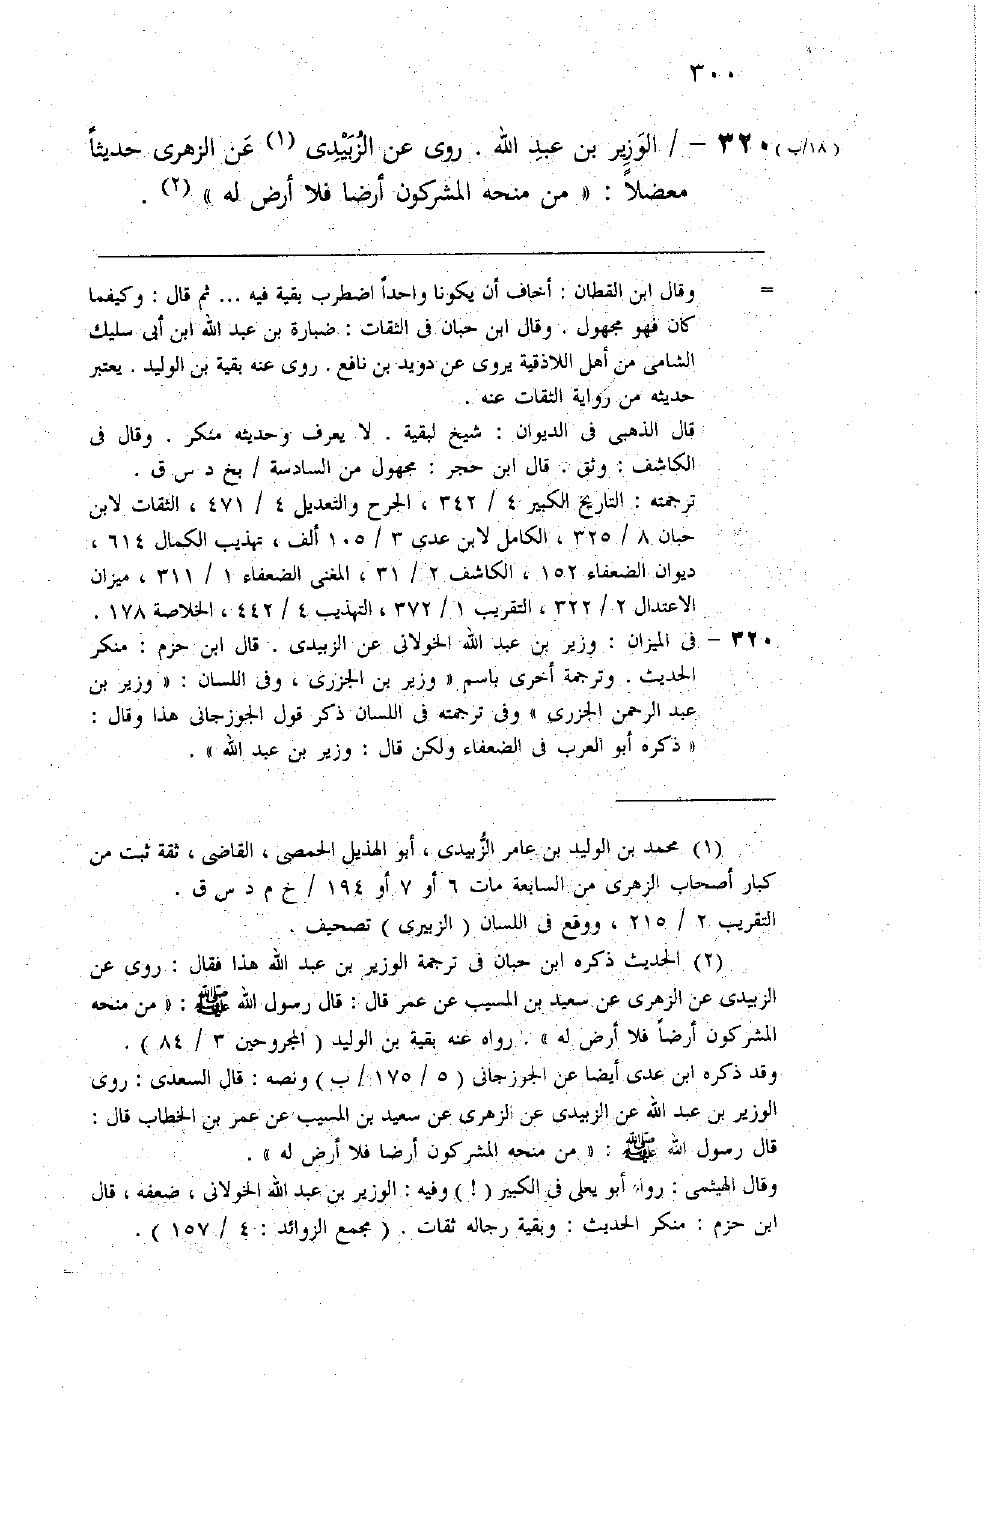 ٣٠٠
(١٨/ب) ٣٢٠ – / الوَزِير بن عبدِ الله . روى عن الزُبَيْدِى (١) عَن الزهرى حديثاً
معضلاً : « من منحه المشركون أرضا فلا أرض له » (٢) .
= وقال ابن القطان : أخاف أن يكونا واحداً اضطرب بقية فيه ... ثم قال : وكيفما
كان فهو مجهول . وقال ابن حبان فى الثقات : ضبارة بن عبد الله ابن أبى سليك
الشامى من أهل اللاذقية يروى عن دويد بن نافع . روى عنه بقية بن الوليد . يعتبر
حديثه من رواية الثقات عنه .
قال الذهبى فى الديوان : شيخ لبقية . لا يعرف وحديثه منكر . وقال فى
الكاشف : وثق . قال ابن حجر : مجهول من السادسة / بخ د س ق .
ترجمته : التاريخ الكبير ٤ / ٣٤٢ ، الجرح والتعديل ٤ / ٤٧١ ، الثقات لابن
حبان ٨ / ٣٢٥ ، الكامل لابن عدى ٣ / ١٠٥ ألف ، تهذيب الكمال ٦١٤ ،
ديوان الضعفاء ١٥٢ ، الكاشف ٢ / ٣١ ، المغنى الضعفاء ١ / ٣١١ ، ميزان
الاعتدال ٢ / ٣٢٢ ، التقريب ١ / ٣٧٢ ، التهذيب ٤ / ٤٤٢ ، الخلاصة ١٧٨ .
٣٢٠ – فى الميزان : وزير بن عبد الله الخولانى عن الزبيدى . قال ابن حزم : منكر
الحديث . وترجمة أخرى باسم « وزير بن الجزرى ، وفى اللسان : « وزير بن
عبد الرحمن الجزرى » وفى ترجمته فى اللسان ذكر قول الجوزجانى هذا وقال :
« ذكره أبو العرب فى الضعفاء ولكن قال : وزير بن عبد الله » .
(١) محمد بن الوليد بن عامر الزُّبيدى ، أبو الهذيل الحمصى ، القاضى ، ثقة ثبت من
كبار أصحاب الزهرى من السابعة مات ٦ أو ٧ أو ١٩٤ / خ م د س ق .
التقريب ٢ / ٢١٥ ، ووقع فى اللسان ( الزبيرى ) تصحيف .
(٢) الحديث ذكره ابن حبان فى ترجمة الوزير بن عبد الله هذا فقال : روى عن
الزبيدى عن الزهرى عن سعيد بن المسيب عن عمر قال : قال رسول الله ﷺ : « من منحه
المشركون أرضاً فلا أرض له » . رواه عنه بقية بن الوليد ( المجروحين ٣ / ٨٤ ) .
وقد ذكره ابن عدى أيضا عن الجوزجانى ( ٥ / ١٧٥ / ب ) ونصه : قال السعدى : روى
الوزير بن عبد الله عن الزبيدى عن الزهرى عن سعيد بن المسيب عن عمر بن الخطاب قال :
قال رسول الله ﷺ : « من منحه المشركون أرضا فلا أرض له » .
وقال الهيثمى : رواه أبو يعلى فى الكبير ( ! ) وفيه : الوزير بن عبد الله الخولانى ، ضعفه ، قال
ابن حزم : منكر الحديث : وبقية رجاله ثقات . ( مجمع الزوائد : ٤ / ١٥٧ ) .